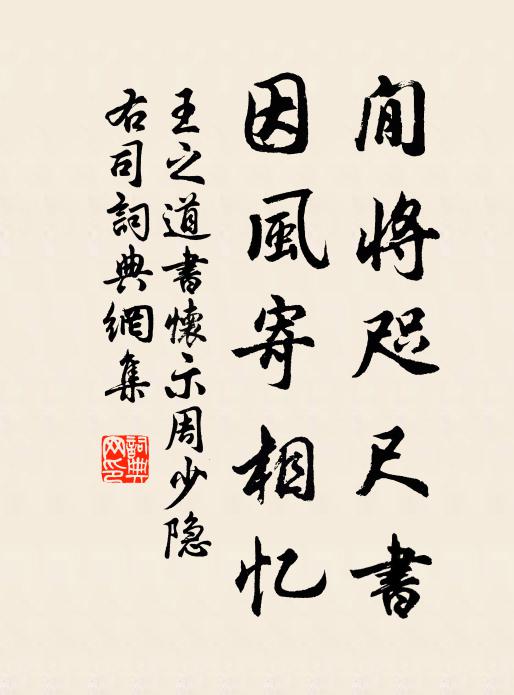 閒将咫尺書
因風寄相忆
王之道書懷示周少隐
右司詞典網集
詞典网印